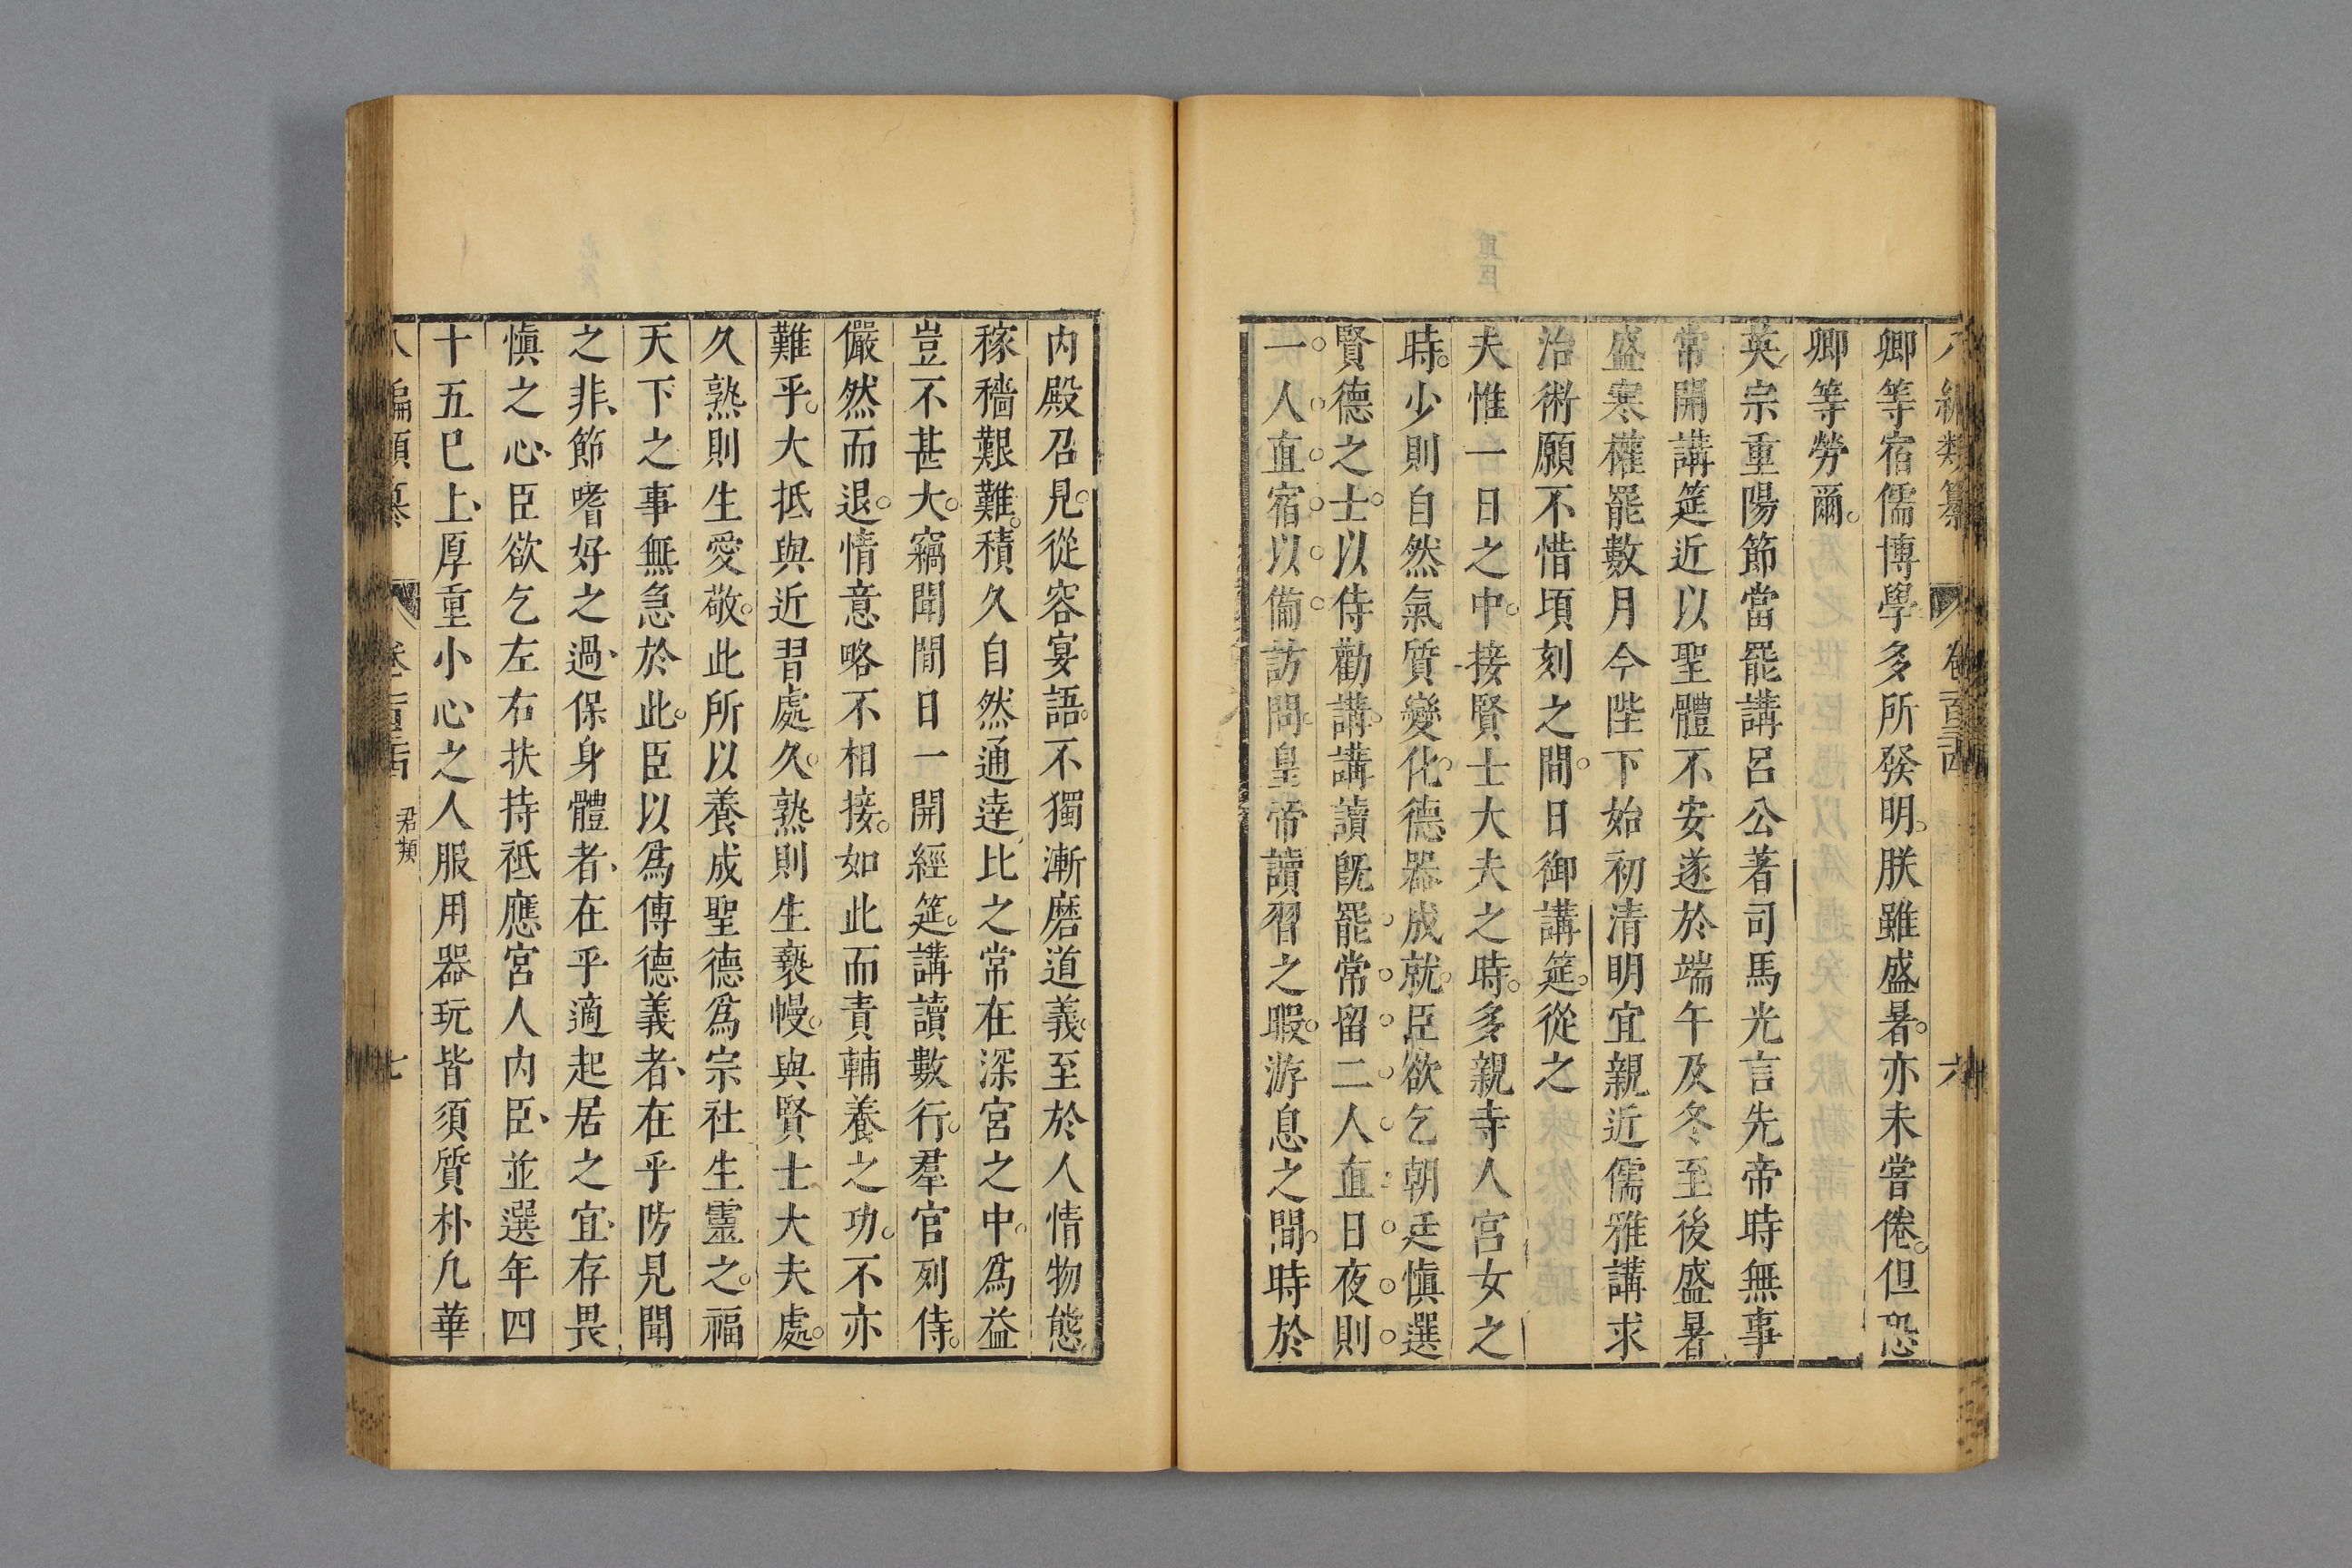 卿等宿儒博學多所發明朕雖盛暑亦未嘗倦但恐
卿等勞爾
英宗重陽節當罷講呂公著司馬光言先帝時無事
常開講筵近以聖體不安遂於端午及冬至後盛暑
盛寒權罷數月今陛下始初清明宜親近儒雅講求
治術願不惜頃刻之間日御講筵從之
夫惟一日之中接賢士大夫之時多親寺人宮女之
時少則自然氣質變化德器成就臣欲乞朝廷慎選
賢德之士以侍勸講講讀旣罷常留二人直日夜則
一人直宿以備訪問皇帝讀習之暇游息之間時於
內殿召見從容宴語不獨漸磨道義至於人情物態
稼穡艱難積久自然通達比之常在深宮之中爲益
豈不甚大竊聞間日一開經筵講讀數行羣官列侍
儼然而退情意略不相接如此而責輔養之功不亦
難乎大抵與近習處久熟則生褻慢與賢士大夫處
久熟則生愛敬此所以養成聖德爲宗社生靈之福
天下之事無急於此臣以爲傅德義者在乎防見聞
之非節嗜好之過保身體者在乎適起居之宜存畏
慎之心臣欲乞左右扶持祗應宮人内臣並選年四
十五巳上厚重小心之人服用器玩皆須質朴凢華
君類
七